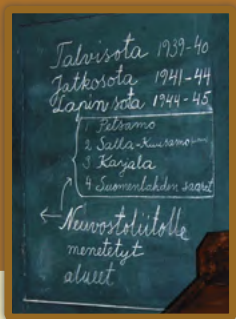 Talvisota 1939-40
Jatkosota 1941-44
Lapin sota 1944-45
1 Petsamo
2 Salla-Kuusamo
3 Karjala
4 Suomenlahden saaret
Neuvostoliitolle
menetetyt
alueet